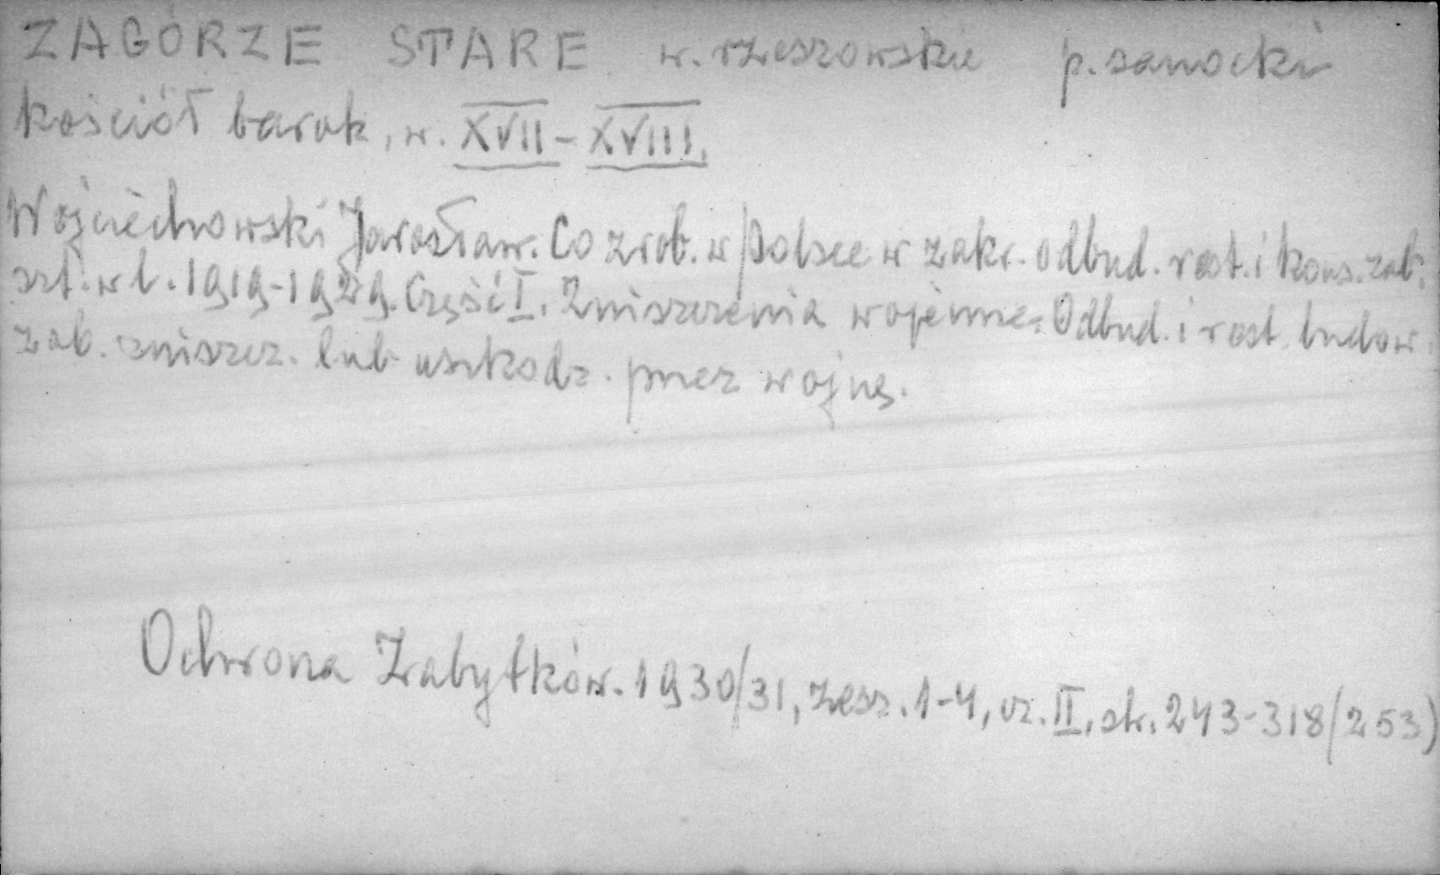 ZAGÓRZE STARE w. rzeszowskie p. sanocki
kościół barok, w. XVII - XVIII.
Wojciechowski Jarosław. Co zrob. w Polsce w zakr. odbud. rest. i kons. zab.
szt. w l. 1919-1929. Część I. Zniszczenia wojenne. Odbud. i rest. budow.
zab. zniszcz. lub uszkodz. przez wojnę.
Ochrona Zabytków. 1930/31, zesz. 1-4, cz. II, str. 243-318 (253)